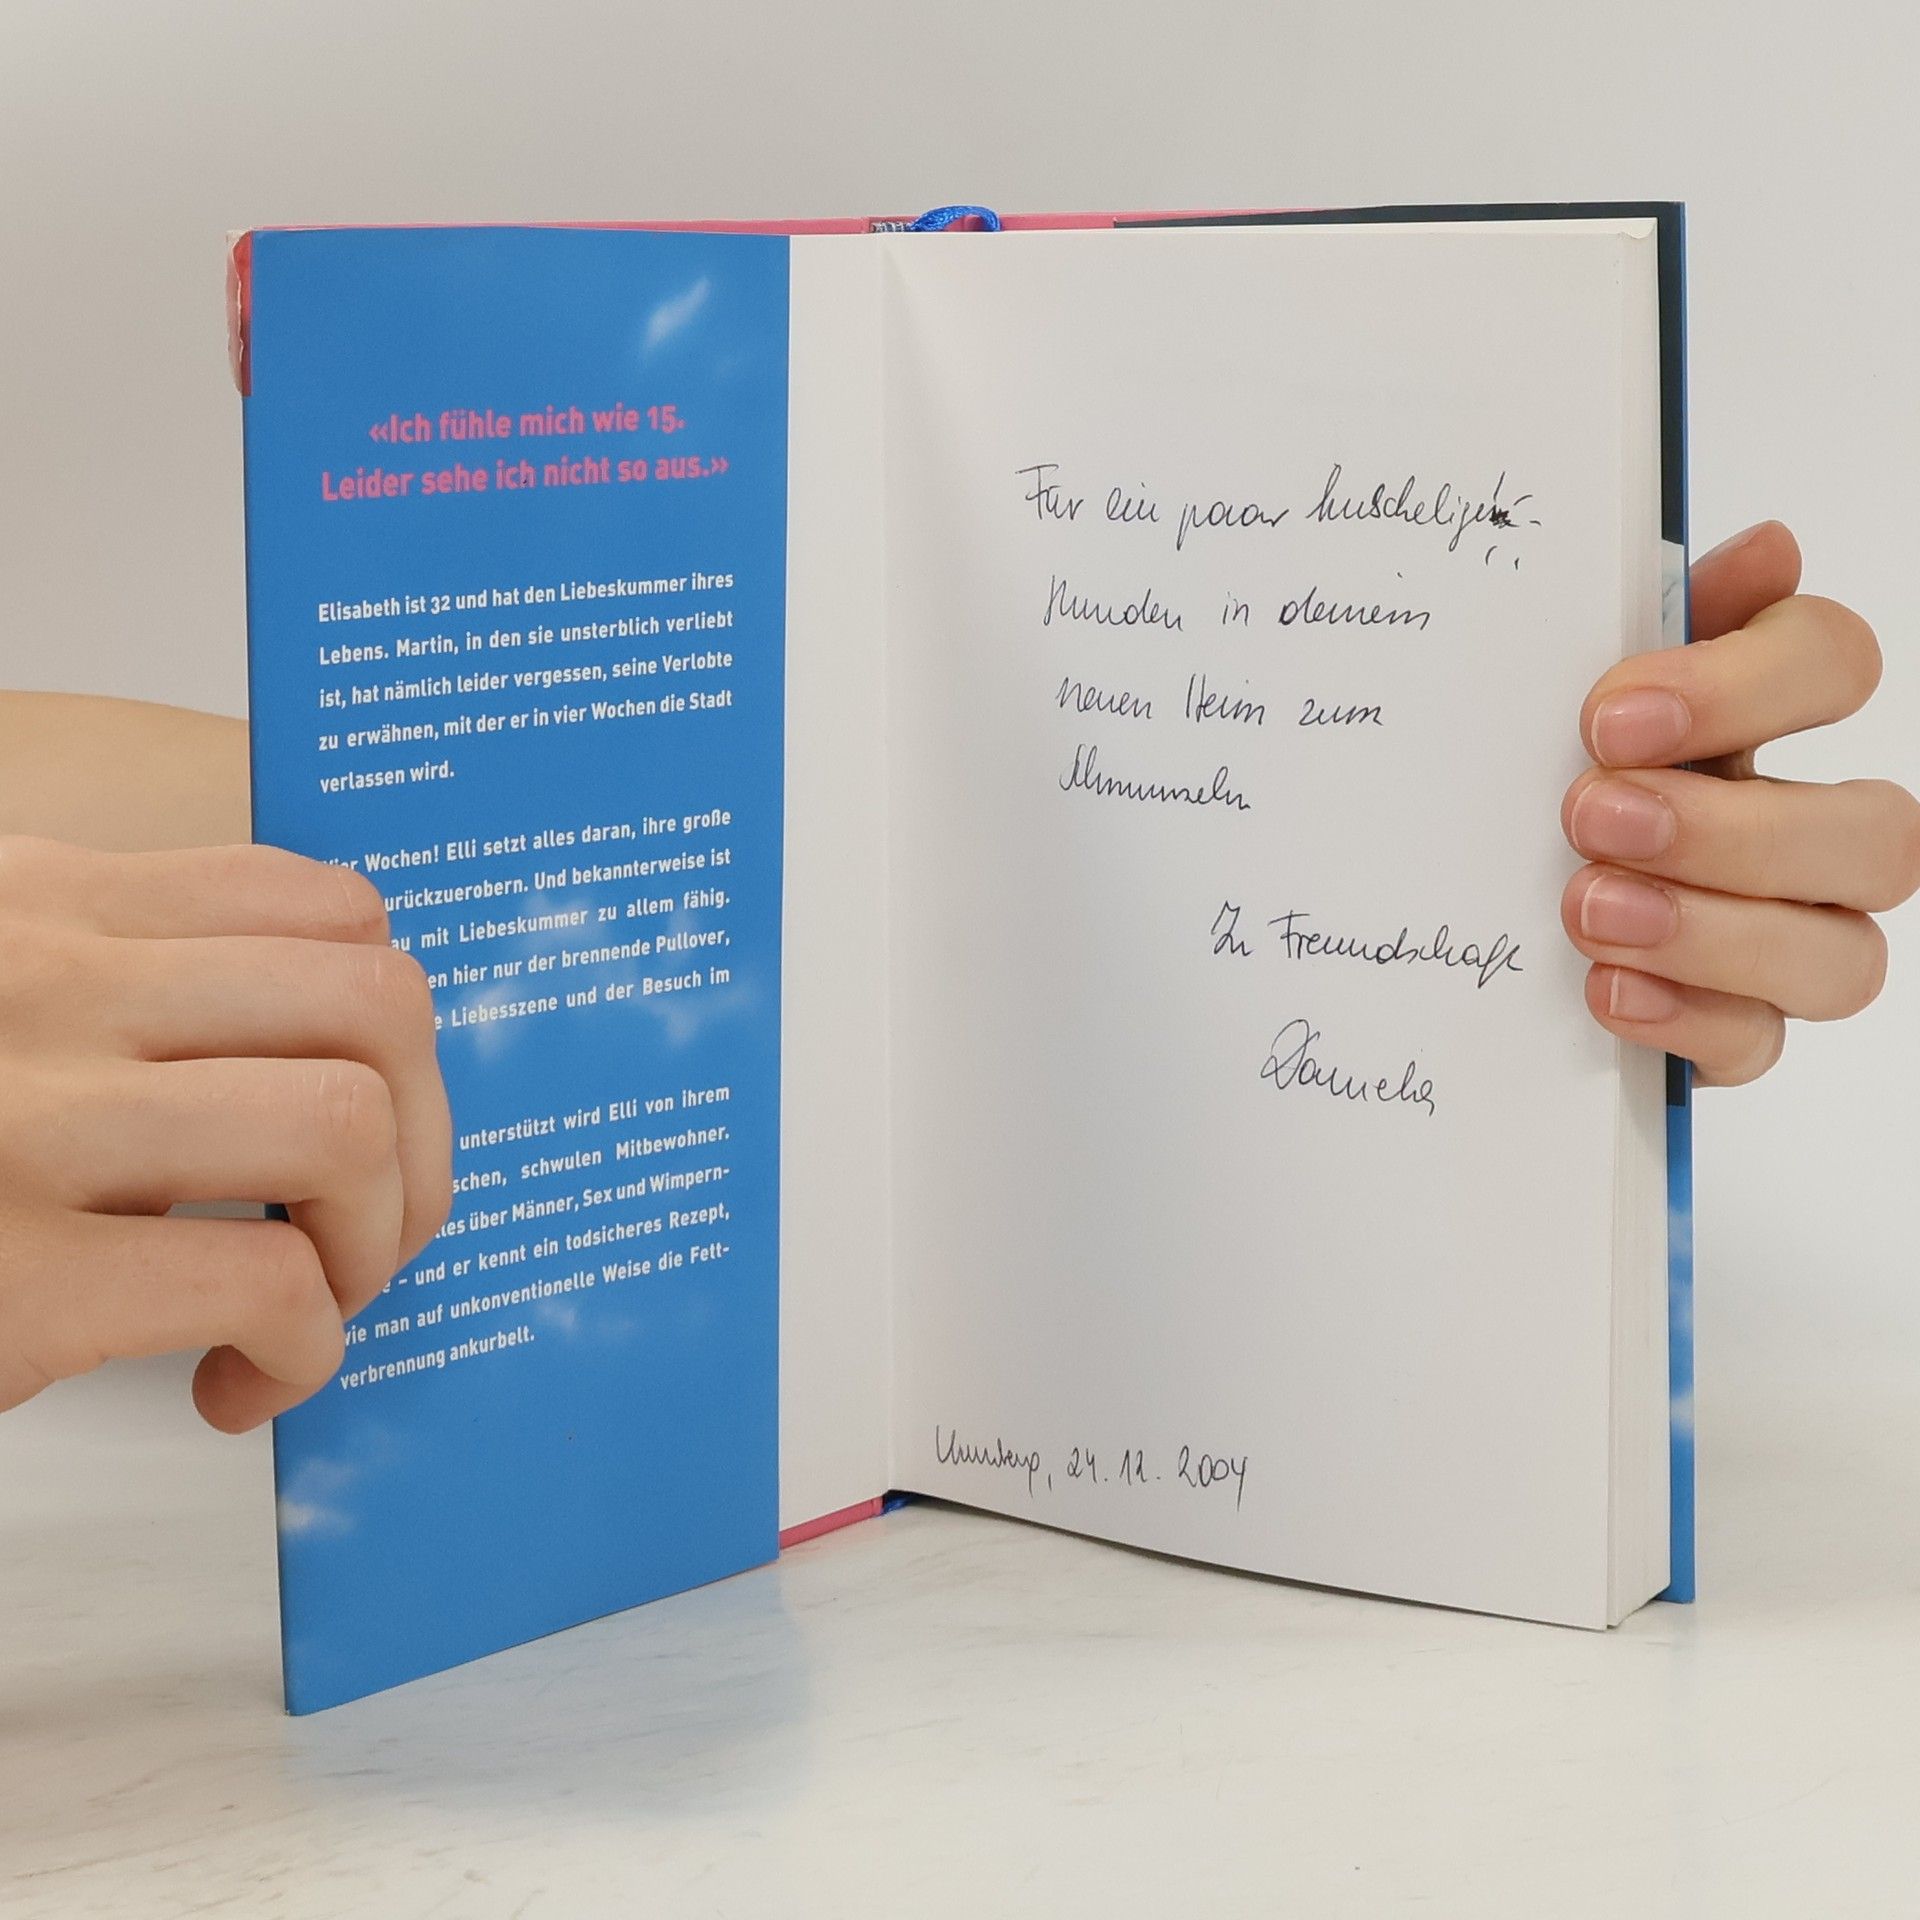 «Ich fühle mich wie 15.
Leider sehe ich nicht so aus.»
Elisabeth ist 32 und hat den Liebeskummer ihres
Lebens. Martin, in den sie unsterblich verliebt
ist, hat nämlich leider vergessen, seine Verlobte
zu erwähnen, mit der er in vier Wochen die Stadt
verlassen wird.
Wochen! Elli setzt alles daran, ihre große
urückzuerobern. Und bekannterweise ist
au mit Liebeskummer zu allem fähig.
en hier nur der brennende Pullover,
e Liebesszene und der Besuch im
unterstützt wird Elli von ihrem
schen, schwulen Mitbewohner.
les über Männer, Sex und Wimpern-
e – und er kennt ein todsicheres Rezept,
wie man auf unkonventionelle Weise die Fett-
verbrennung ankurbelt.
Für ein paar kuschelige
Stunden in deinem
neuen Heim zum
Schmunzeln
In Freundschaft
Daniela
24.12.2004